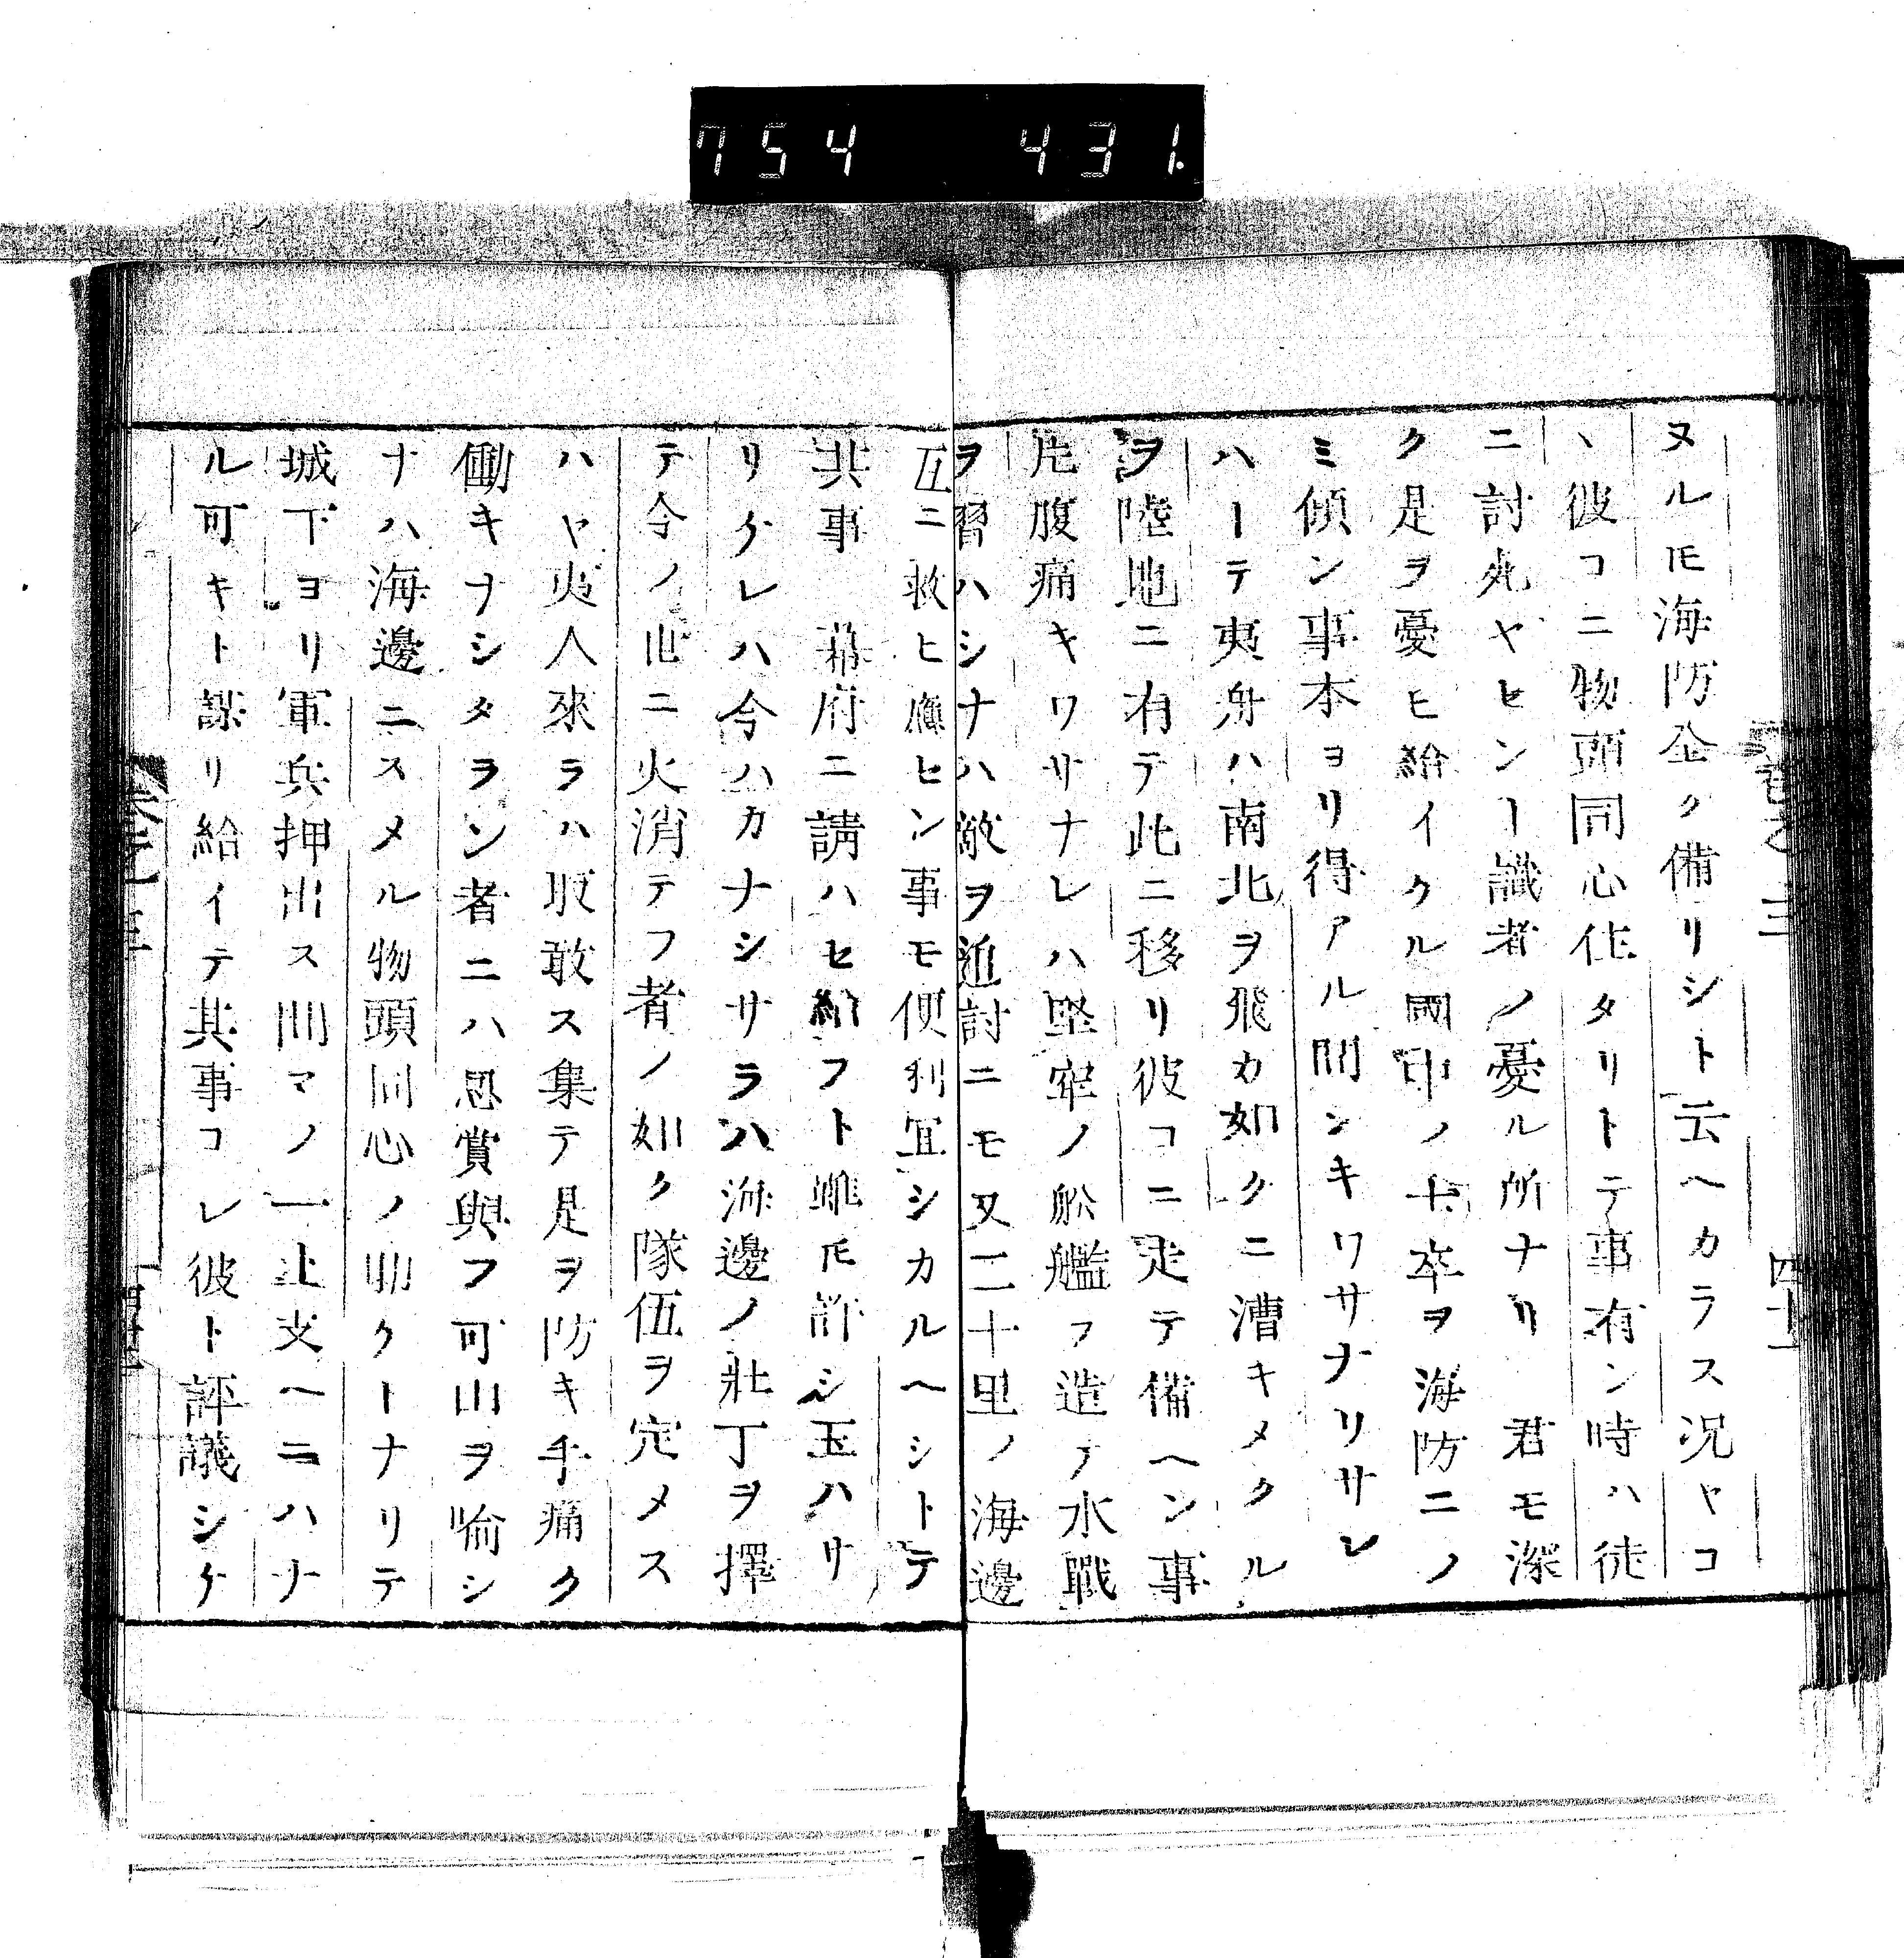 754 431.
ヌルモ海防全ク備リシト云ヘカラス况ヤコ
ヽ彼コニ物頭同心住タリトテ事有ン時ハ徒
ニ討死ヤセンヿ識者ノ憂ル所ナリ 君モ深
ク是ヲ憂ヒ給イクル國中ノ士卒ヲ海防ニノ
ミ傾ン事本ヨリ得アル間シキワサナリサレ
ハーテ夷舟ハ南北ヲ飛カ如クニ漕キメクル
ヲ陸地ニ有テ此ニ移リ彼コニ走テ備ヘン事
片腹痛キワサナレハ堅牢ノ舩艦フ造テ水戰
ヲ習ハシナハ敵ヲ追討ニモ又二十里ノ海邊
互ニ救ヒ應ヒン事モ便利宜シカルヘシトテ
其事 幕府ニ請ハセ給フト雖𪜈許シ玉ハサ
リケレハ今ハカナシサラハ海邊ノ壯丁ヲ擇
テ今ノ世ニ火消テフ者ノ如ク隊伍ヲ定メス
ハヤ夷人來ラハ取敢ス集テ是ヲ防キ手痛ク
働キヲシタラン者ニハ恩賞與フ可山ヲ喻シ
ナハ海邊ニスメル物頭同心ノ助クトナリテ
城下ヨリ軍兵押出ス間マノ一止支ヘニハナ
ル可キト謀リ給イテ其事コレ彼ト評議シケ
四十一